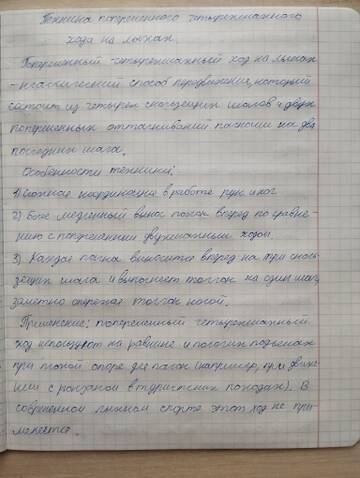 Техника попеременного четырехшажного
хода на лыжах.
Попеременный четырехшажный ход на лыжах
- классический способ передвижения, который
состоит из четырех скользящих шагов и двух
попеременных отталкиваний палками на два
последних шага.
Особенности техники:
1) Сложная координация в работе рук и ног.
2) Более медленный вынос палок вперед по сравне-
нию с попеременным двухшажным ходом.
3) Каждая палка выносится вперед на три сколь-
зящих шага и выполняет толчок на один шаг,
заметно опережая толчок ногой.
Применение: попеременный четырехшажный
ход используют на равнине и пологих подъемах
при плохой опоре для палок (например, при движе-
нии с рюкзаком в туристских походах). В
современном лыжном спорте этот ход не при-
меняется.